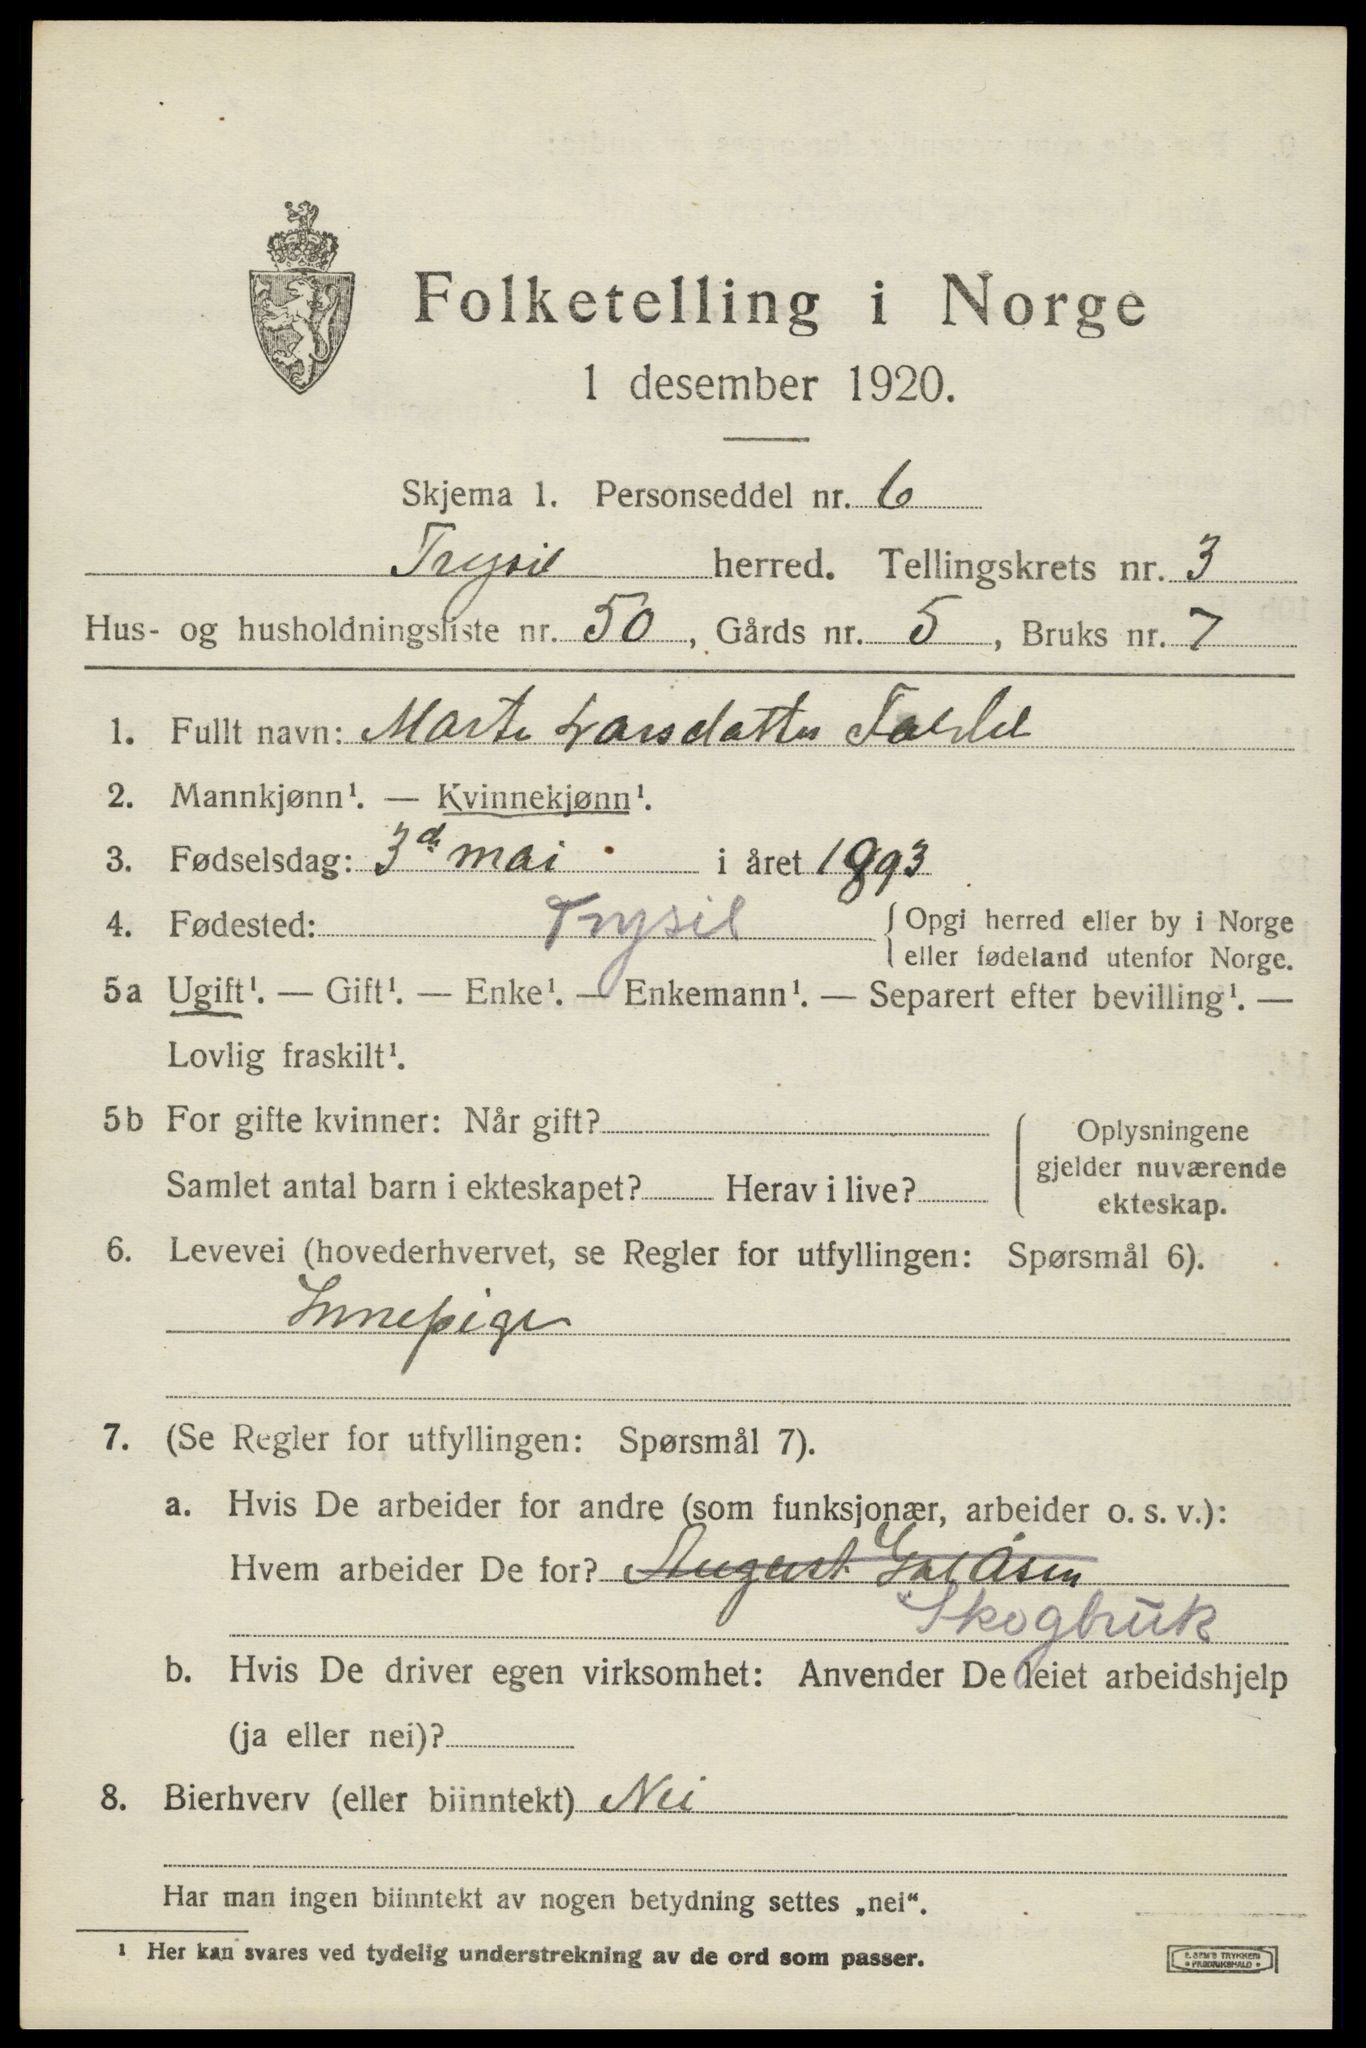 Folketelling i Norge
1 desember 1920.
Skjema 1. Personseddel nr. 6
Trysil herred. Tellingskrets nr. 3
Hus- og husholdningsliste nr. 50, Gårds nr. 5, Bruks nr. 7
1. Fullt navn: Marte Larsdatter
2. Mannkjønn¹. — Kvinnekjønn¹.
3. Fødselsdag: 3d mai i året 1893
4. Fødested: Trysil { Opgi herred eller by i Norge
eller fødeland utenfor Norge.
5a Ugift¹. — Gift¹. — Enke¹. — Enkemann¹. — Separert efter bevilling¹. —
Lovlig fraskilt¹.
5b For gifte kvinner: Når gift?
Samlet antal barn i ekteskapet? Herav i live?
Oplysningene
gjelder nuværende
ekteskap.
6. Levevei (hovederhvervet, se Regler for utfyllingen: Spørsmål 6).
Innepige
7. (Se Regler for utfyllingen: Spørsmål 7).
a. Hvis De arbeider for andre (som funksjonær, arbeider o. s. v.):
Hvem arbeider De for? August Galåsen
Skogbruk
b. Hvis De driver egen virksomhet: Anvender De leiet arbeidshjelp
(ja eller nei)?
8. Bierhverv (eller biinntekt) Nei
Har man ingen biinntekt av nogen betydning settes „nei“.
¹ Her kan svares ved tydelig understrekning av de ord som passer.
E. SEM'S TRYKKERI
• FREDRIKSHALD •